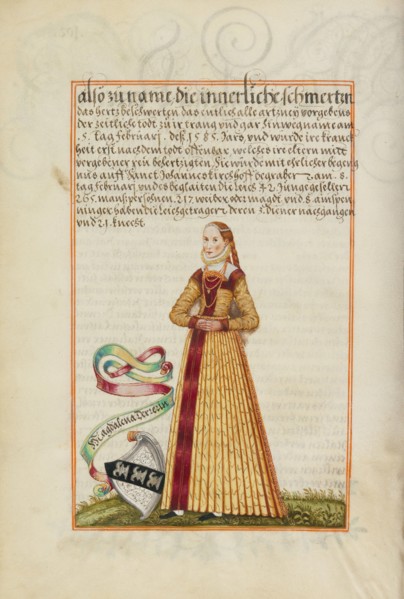 also zuname die innerliche schmertzn
das hertz beschwerten das entlich alle artzney vorgebens
der zeitliche todt zu ir trang und gar hinweg name am
.5. tag februarj. deß 1585. Jars, und wurde ire kranck
heit erst nach dem todt offenbar, welches ire eltern mitt
vergebener reu behertzigten. Sie würde mit ehrlicher begeng
niß auff Sanct Johannes kirchhoff begraben am .8.
tag februarj. und es beglaiten die leich 42 Junge gesellen
265. manßpersohnen. 217. weiber oder magdt. und 8. ainspen
ninger haben die leich getragen deren diener nach gangen
und 21. knecht
Magdalena